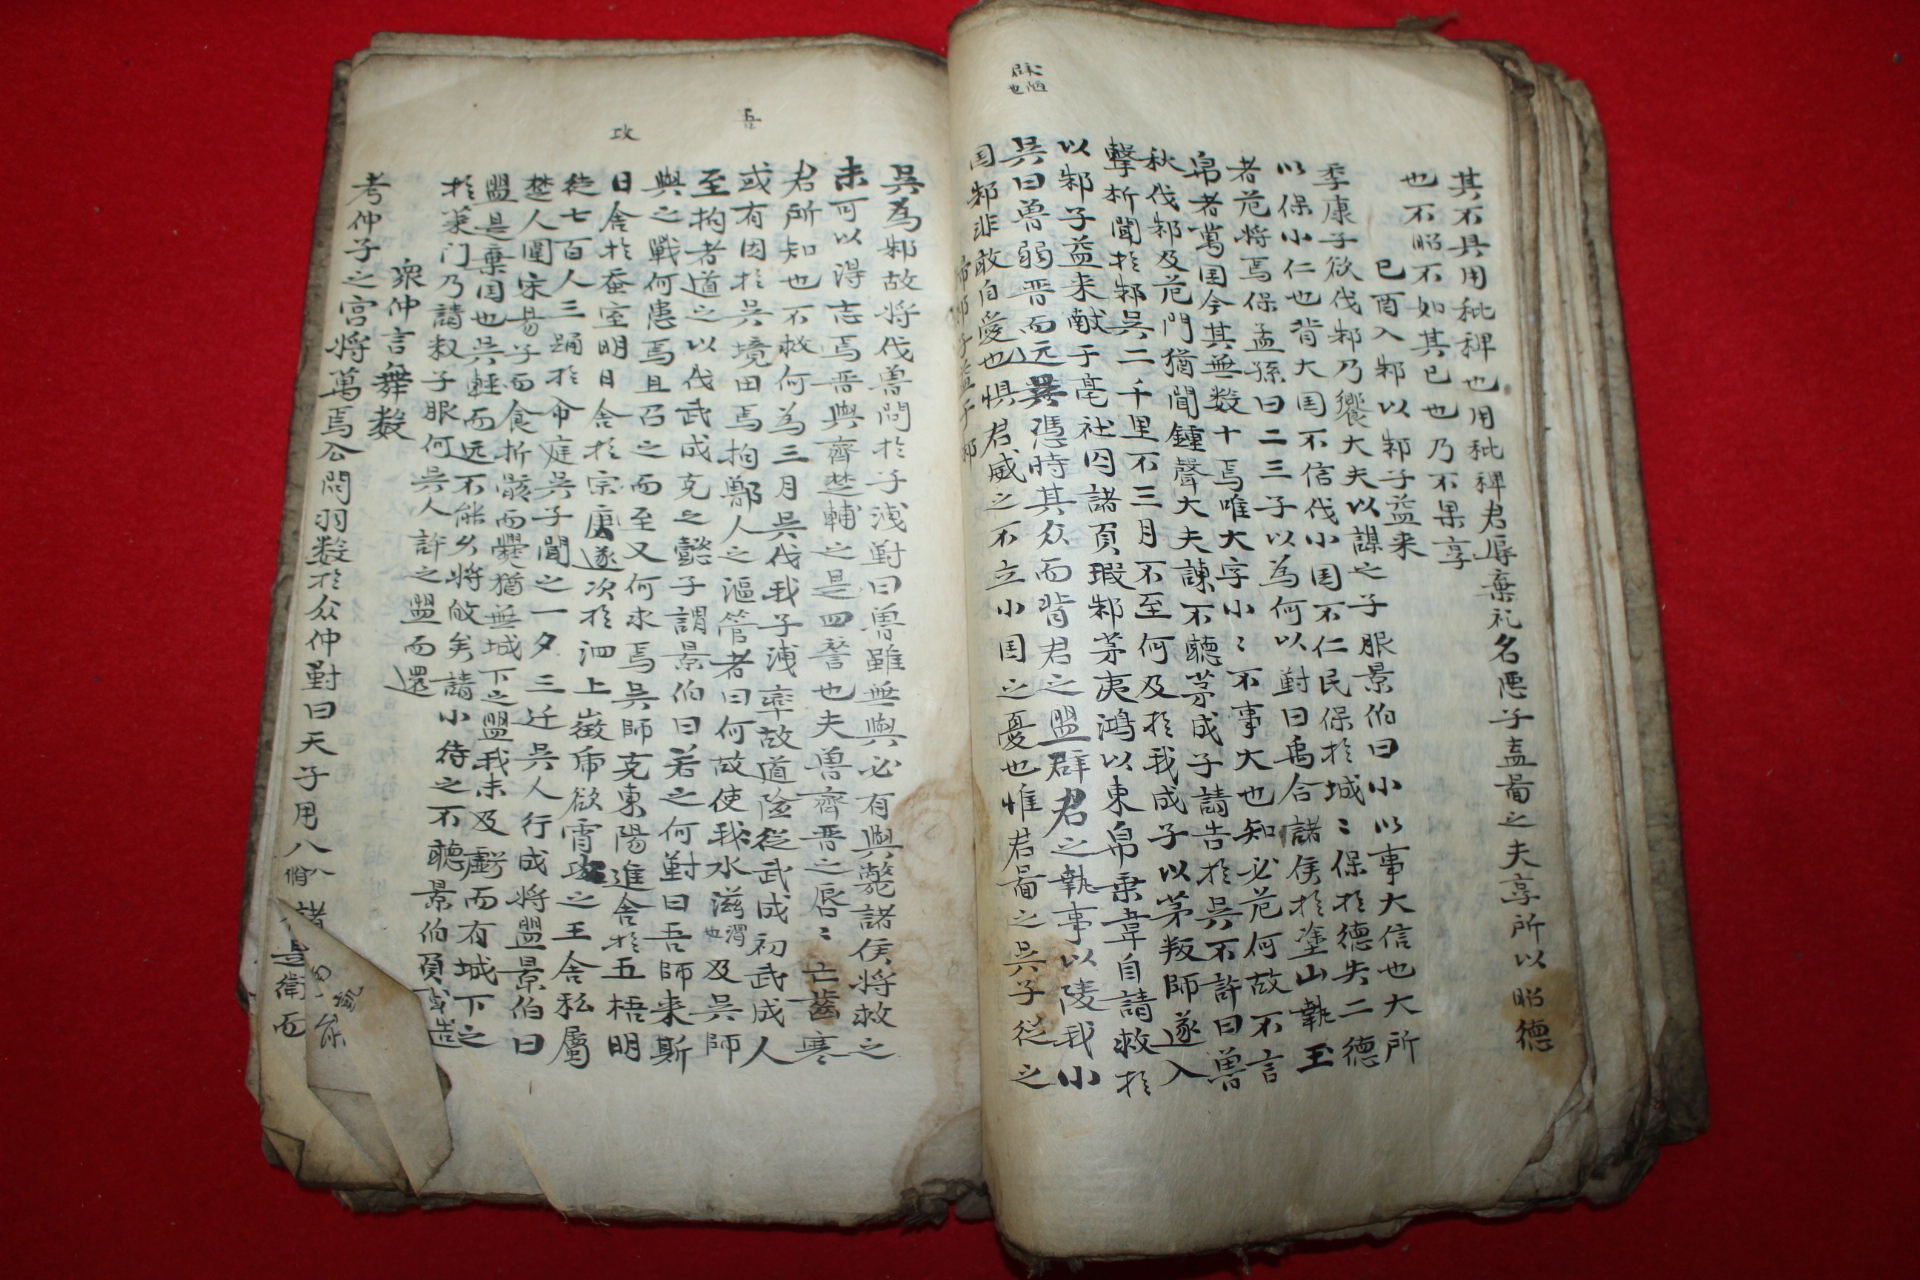 其不具用秕稗也用秕稗君辱棄礼名惡子盍啚之夫享所以昭德
也不昭不如其已也乃不果享
己酉入邾以邾子益来
季康子欲伐邾乃饗大夫以謀之子服景伯曰小以事大信也大所
以保小仁也背大国不信伐小国不仁民保於城〻保於德失二德
者危将焉保孟孫曰二三子以為何以對曰禹合諸侯於塗山執玉
帛者萬国今其無数十焉唯大字小〻不事大也知必危何故不言
秋伐邾及范門猶聞鍾聲大夫諌不聴茅成子請告於吳不許曰魯
擊柝聞於邾吳二千里不三月不至何及於我成子以茅叛師遂入
以邾子益来献于亳社囚諸負瑕邾茅夷鴻以束帛乗韋自請救於
吳曰魯弱晋而远吳馮時其众而背君之盟群君之執事以陵我小
国邾非敢自愛也惧君威之不立小国之憂也惟君啚之吳子從之
吳為邾故将伐魯問於子洩對曰魯雖無與必有與斃諸侯将救之
未可以得志焉晋與齊楚輔之是四讐也夫魯齊晋之唇〻亡齒寒
君所知也不救何為三月吳伐我子洩率故道险從武成初武成人
或有因於吳境田焉拘鄫人之漚菅者曰何故使我水滋及吳師
至拘者道之以伐武成克之懿子謂景伯曰若之何對曰吾師来斯
與之戰何患焉且召之而至又何求焉吳師克東陽進舍於五梧明
日舍於蚕室明日舍於宗庚遂次於泗上微乕欲宵攻之王舍私屬
徒七百人三踊於布庭吳子聞之一夕三迁吳人行成将盟景伯曰
楚人圍宋昜子而食折骸而爨猶無城下之盟我未及虧而有城下之
盟是棄国也吳軽而远不能久将帰矣請小待之不聴景伯負或造
於莱门乃請救子服何吳人許之盟而還
衆仲言舞数
考仲子之宮将萬焉公問羽数於众仲對曰天子用八
吾
攻